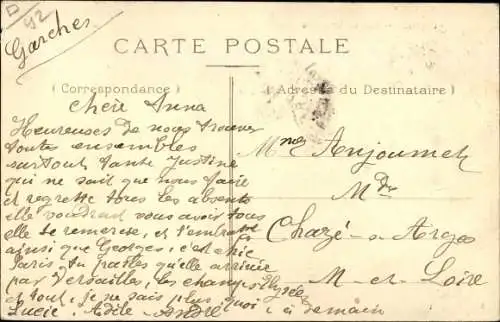 D
92
Garches
CARTE POSTALE
( Correspondance )
( Adresse du Destinataire )
Chère Anna
Heureuses de nous trouver
toutes ensembles
surtout tante Justine
qui ne sait que nous faire
et regrette tous les absents
elle voudrait vous avoir tous
elle se remercie, et l'embrasse
ainsi que Georges, c'est chic
Paris, tu parles qu'elle arrivée
par Versailles, les champs Elysées
et tout, je ne sais plus quoi
Lucie, Adèle André, à demain
Mme Anjoumet
Mde
Chazé-s-Argos
M-et-Loire